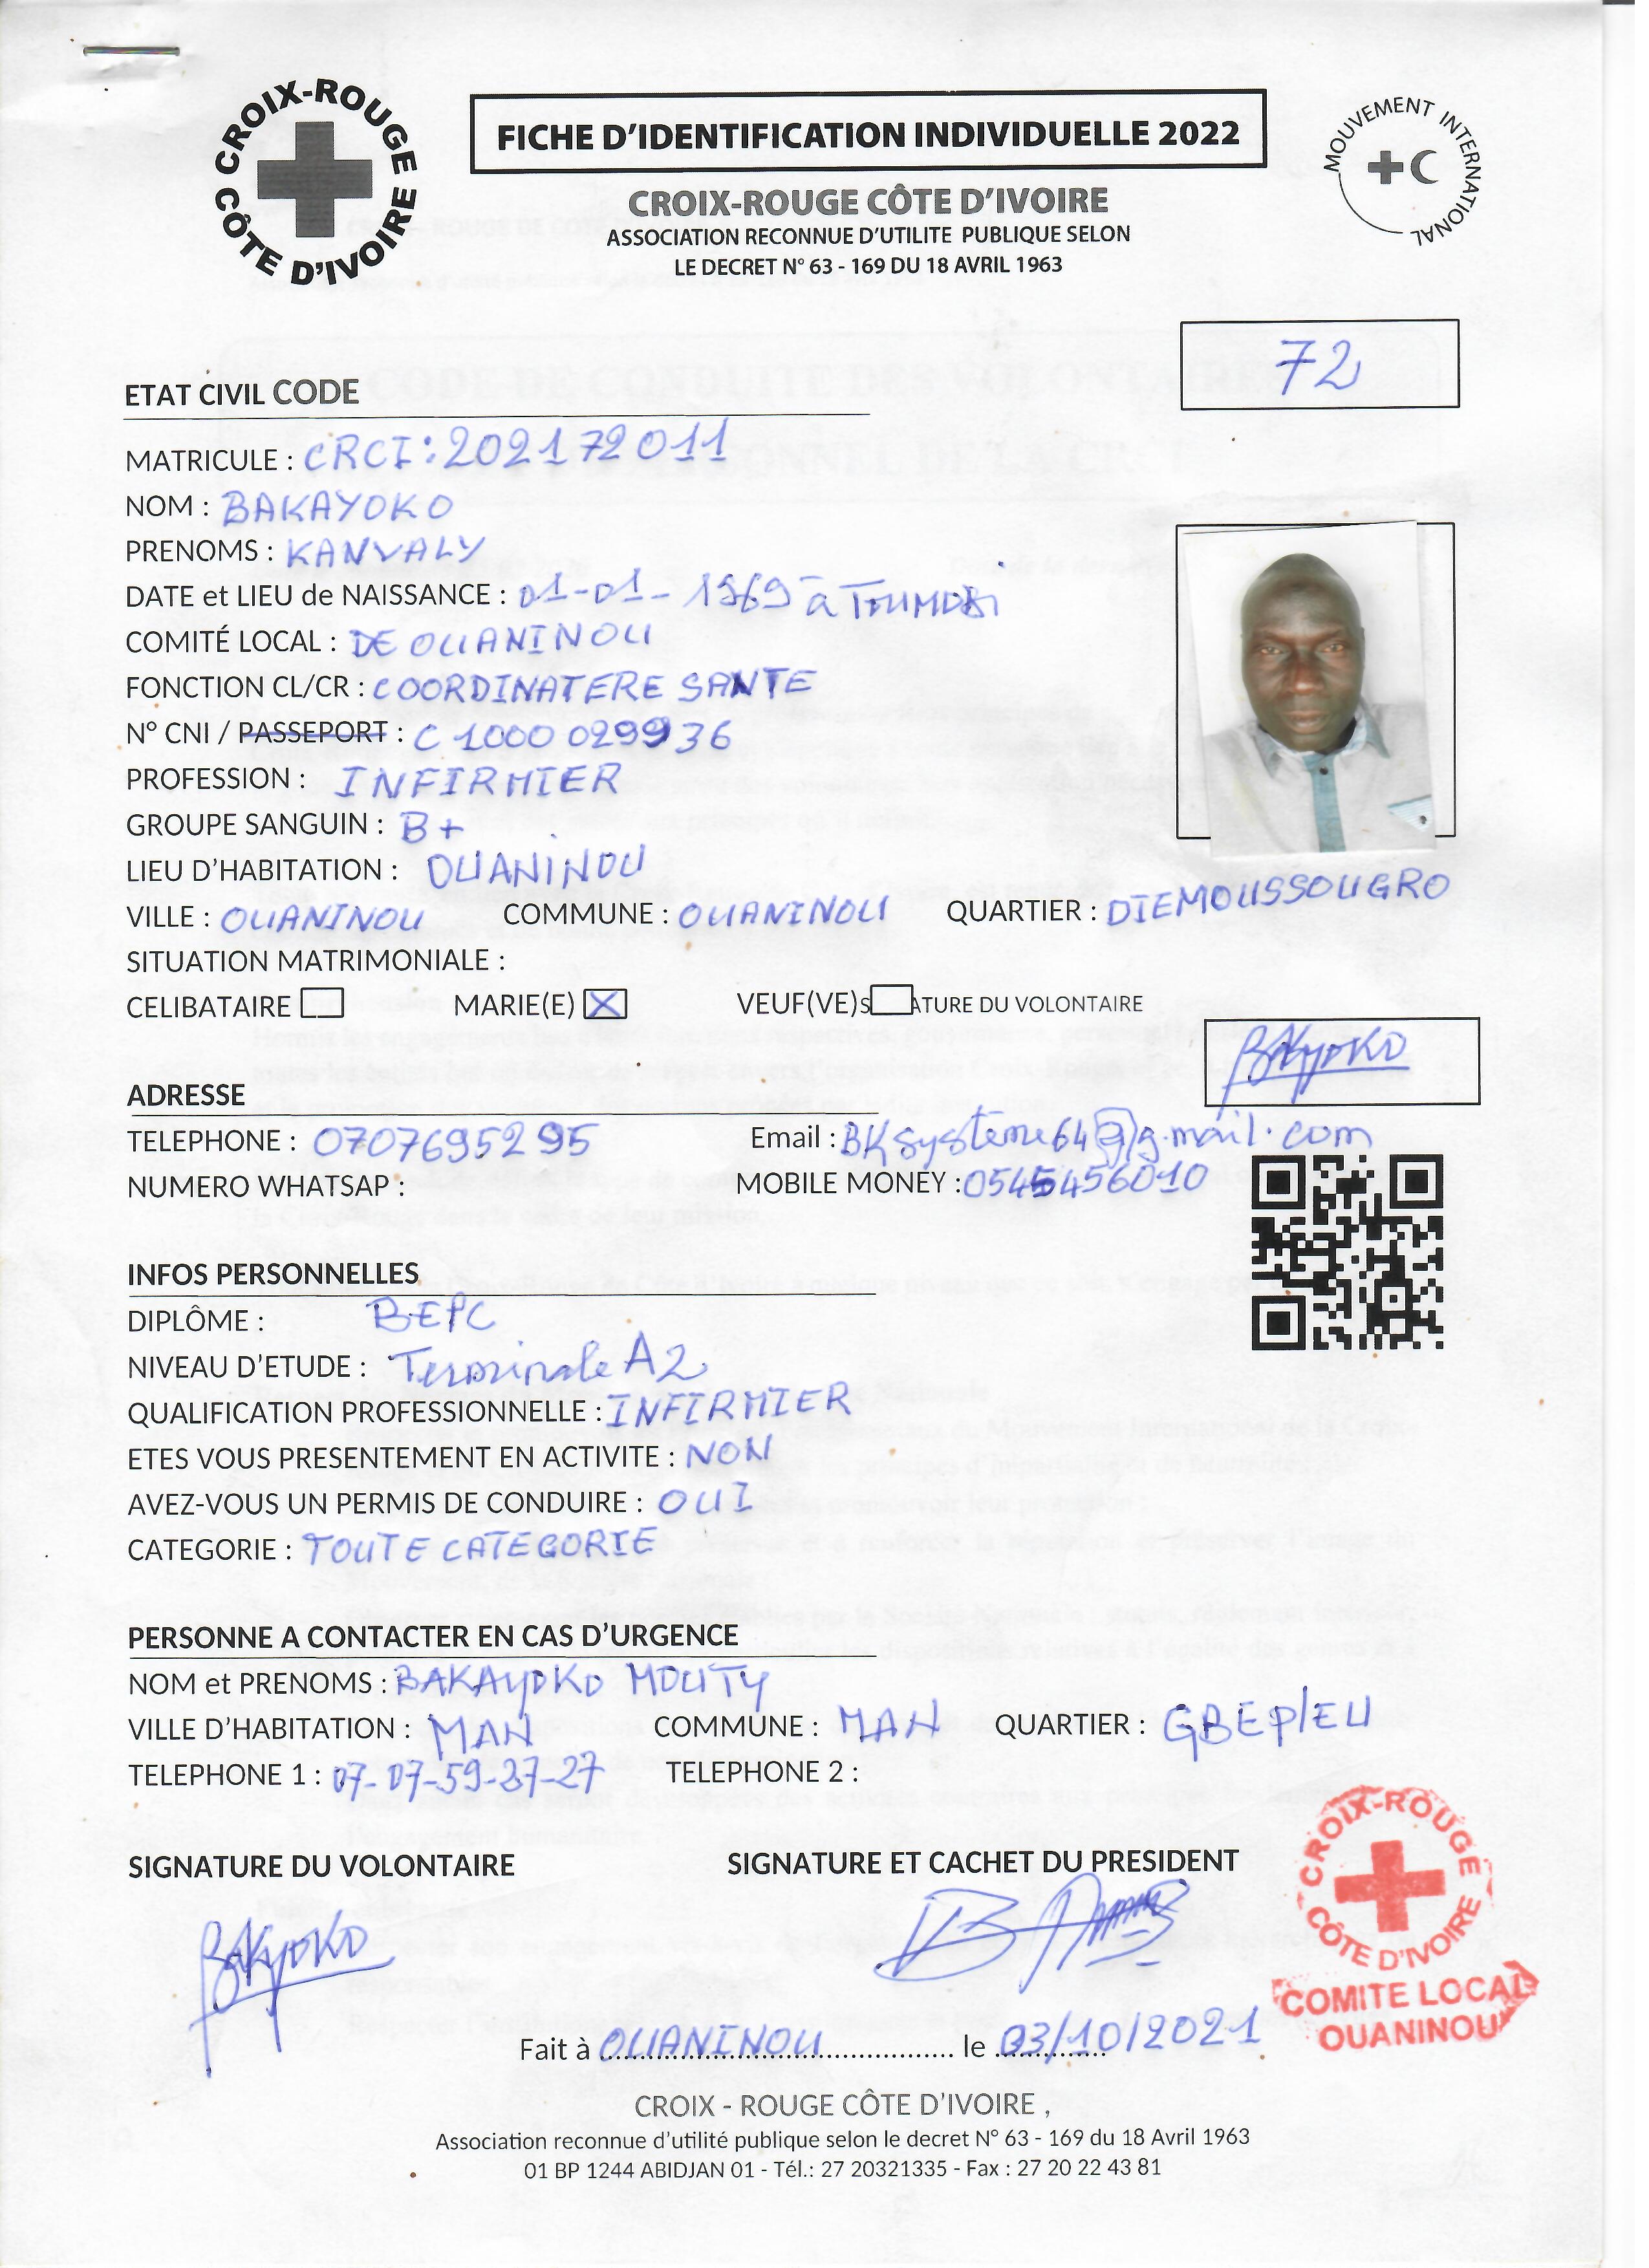 CROIX-ROUGE CÔTE D'IVOIRE
FICHE D'IDENTIFICATION INDIVIDUELLE 2022
MOUVEMENT INTERNATIONAL
CROIX-ROUGE CÔTE D'IVOIRE
ASSOCIATION RECONNUE D'UTILITE PUBLIQUE SELON
LE DECRET N° 63 - 169 DU 18 AVRIL 1963
72
ETAT CIVIL CODE
MATRICULE : CRCI : 202172011
NOM : BAKAYOKO
PRENOMS : KANVALY
DATE et LIEU de NAISSANCE : 01-01-1969 à
COMITÉ LOCAL : DE OUANINOU
FONCTION CL/CR : COORDINATERE SANTE
N° CNI / PASSEPORT : C 1000 029936
PROFESSION : INFIRMIER
GROUPE SANGUIN : B+
LIEU D'HABITATION : OUANINOU
VILLE : OUANINOU COMMUNE : OUANINOU QUARTIER : DIEMOUSSOUGRO
SITUATION MATRIMONIALE :
CELIBATAIRE MARIE(E) X VEUF(VE) S ATURE DU VOLONTAIRE
BAKAYOKO
ADRESSE
TELEPHONE : 0707695295 Email : BKsystème64@g.mail.com
NUMERO WHATSAP : MOBILE MONEY : 0545456010
INFOS PERSONNELLES
DIPLÔME : BEPC
NIVEAU D'ETUDE : Terminale A2
QUALIFICATION PROFESSIONNELLE : INFIRMIER
ETES VOUS PRESENTEMENT EN ACTIVITE : NON
AVEZ-VOUS UN PERMIS DE CONDUIRE : OUI
CATEGORIE : TOUTE CATEGORIE
PERSONNE A CONTACTER EN CAS D'URGENCE
NOM et PRENOMS : BAKAYOKO MOUTY
VILLE D'HABITATION : MAN COMMUNE : MAN QUARTIER : GBEPLEU
TELEPHONE 1 : 07-07-59-27-27 TELEPHONE 2 :
SIGNATURE DU VOLONTAIRE SIGNATURE ET CACHET DU PRESIDENT
BAKAYOKO
CROIX-ROUGE CÔTE D'IVOIRE
COMITE LOCAL
OUANINOU
Fait à OUANINOU le 03/10/2021
CROIX - ROUGE CÔTE D'IVOIRE ,
Association reconnue d'utilité publique selon le decret N° 63 - 169 du 18 Avril 1963
01 BP 1244 ABIDJAN 01 - Tél.: 27 20321335 - Fax : 27 20 22 43 81